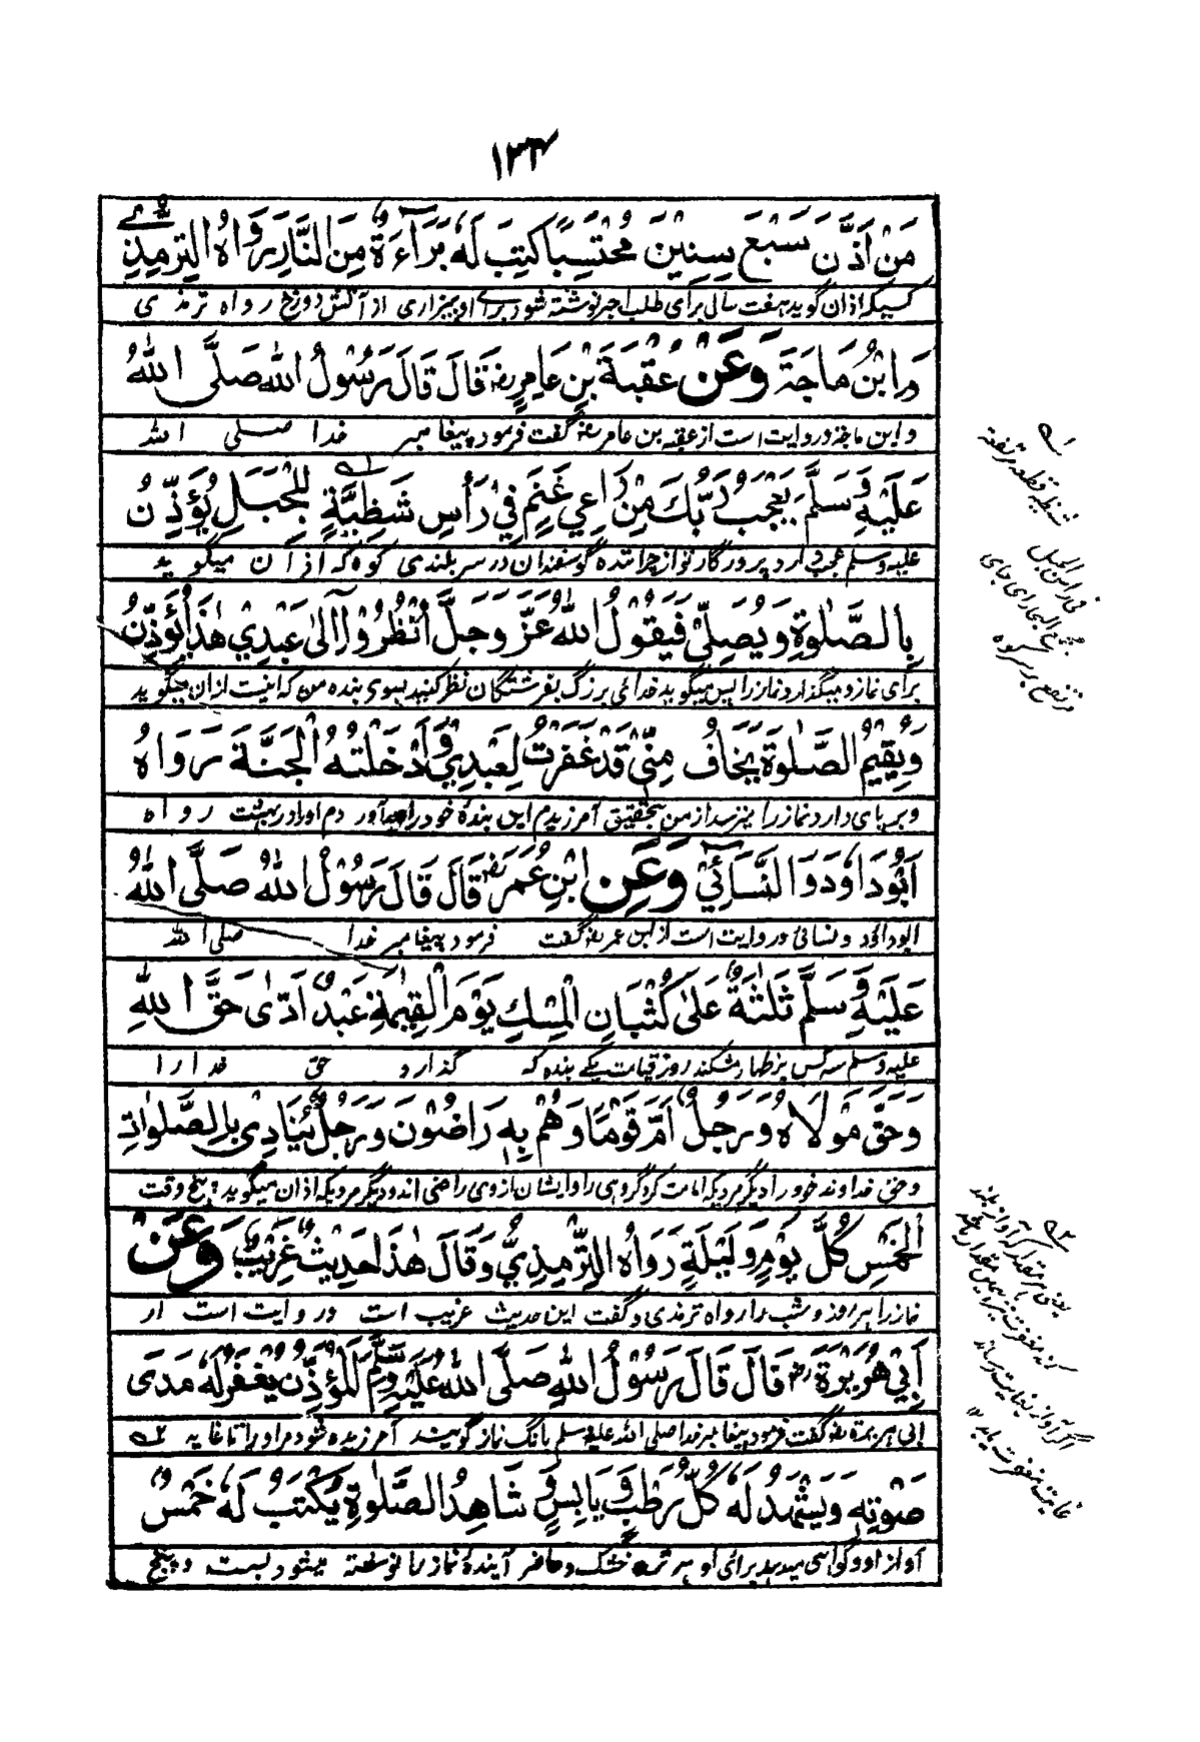 ۱۳۴
مَنْ اَذَّنَ سَبْعَ سِنِيْنَ مُحْتَسِبًا كُتِبَ لَهُ بَرَآءَةٌ مِنَ النَّارِ رَوَاهُ التِّرْمِذِيُّ
کسیکه اذان گوید هفت سال برای طلب اجر نوشته شود برای او بیزاری از آتش دوزخ رواه ترمذی
وَابْنُ مَاجَةَ وَعَنْ عُقْبَةَ بْنِ عَامِرٍ رض قَالَ قَالَ رَسُوْلُ اللهِ صَلَّى اللهُ
و ابن ماجه و روایت است از عقبه بن عامر رض گفت فرمود پیغامبر خدا صلی الله
عَلَيْهِ وَسَلَّمَ يَعْجَبُ رَبُّكَ مِنْ رَاعِي غَنَمٍ فِيْ رَأْسِ شَظِيَّةٍ لِلْجَبَلِ يُؤَذِّنُ
علیه وسلم عجب دارد پروردگار تو از چراننده گوسفندان در سر بلندی کوه که اذان میگوید
بِالصَّلٰوةِ وَيُصَلِّيْ فَيَقُوْلُ اللهُ عَزَّ وَجَلَّ اُنْظُرُوْا اِلىٰ عَبْدِيْ هٰذَا يُؤَذِّنُ
برای نماز و میگذارد نماز را پس میگوید خدائی بزرگ بفرشتگان نظر کنید بسوی بنده من که اینست اذان میگوید
وَيُقِيْمُ الصَّلٰوةَ يَخَافُ مِنِّيْ قَدْ غَفَرْتُ لِعَبْدِيْ وَاَدْخَلْتُهُ الْجَنَّةَ رَوَاهُ
و برپای دارد نماز را میترسد از من بتحقیق آمرزیدم این بندهٔ خود را و درآوردم او را در بهشت رواه
اَبُوْ دَاوُدَ وَالنَّسَائِيُّ وَعَنِ ابْنِ عُمَرَ رض قَالَ قَالَ رَسُوْلُ اللهِ صَلَّى اللهُ
ابوداؤد و نسائی و روایت است از ابن عمر رض گفت فرمود پیغامبر خدا صلی الله
عَلَيْهِ وَسَلَّمَ ثَلٰثَةٌ عَلىٰ كُثْبَانِ الْمِسْكِ يَوْمَ الْقِيٰمَةِ عَبْدٌ اَدّٰى حَقَّ اللهِ
علیه وسلم سه کس بر مشکند روز قیامت یکی بنده که گذارد حق خدا را
وَحَقَّ مَوْلَاهُ وَرَجُلٌ اَمَّ قَوْمًا وَهُمْ بِهِ رَاضُوْنَ وَرَجُلٌ يُنَادِيْ بِالصَّلَوٰاتِ
و حق خداوند خود را دیگر مردیکه امامت کرد گروهی را و ایشان بازوی راضی اند و دیگر مردیکه اذان میگوید پنج وقت
الْخَمْسِ كُلَّ يَوْمٍ وَلَيْلَةٍ رَوَاهُ التِّرْمِذِيُّ وَقَالَ هٰذَا حَدِيْثٌ غَرِيْبٌ وَعَنْ
نماز را هر روز و شب را رواه ترمذی و گفت این حدیث غریب است و روایت است از
اَبِيْ هُرَيْرَةَ رض قَالَ قَالَ رَسُوْلُ اللهِ صَلَّى اللهُ عَلَيْهِ وَسَلَّمَ الْمُؤَذِّنُ يُغْفَرُ لَهُ مَدٰى
ابی هریرة رض گفت فرمود پیغامبر خدا صلی الله علیه وسلم بانگ نماز گوینده آمرزیده شود مر او را تا غایه
صَوْتِهِ وَيَشْهَدُ لَهُ كُلُّ رَطْبٍ وَّيَابِسٍ وَّ شَاهِدُ الصَّلٰوةِ يُكْتَبُ لَهُ خَمْسٌ
آواز او و گواهی میدهد برای او هر تر و خشک و حاضر آیندهٔ نماز را نوشته میشود بست و پنج
شظیه قطعه مرتفعة
فی راس الجبل